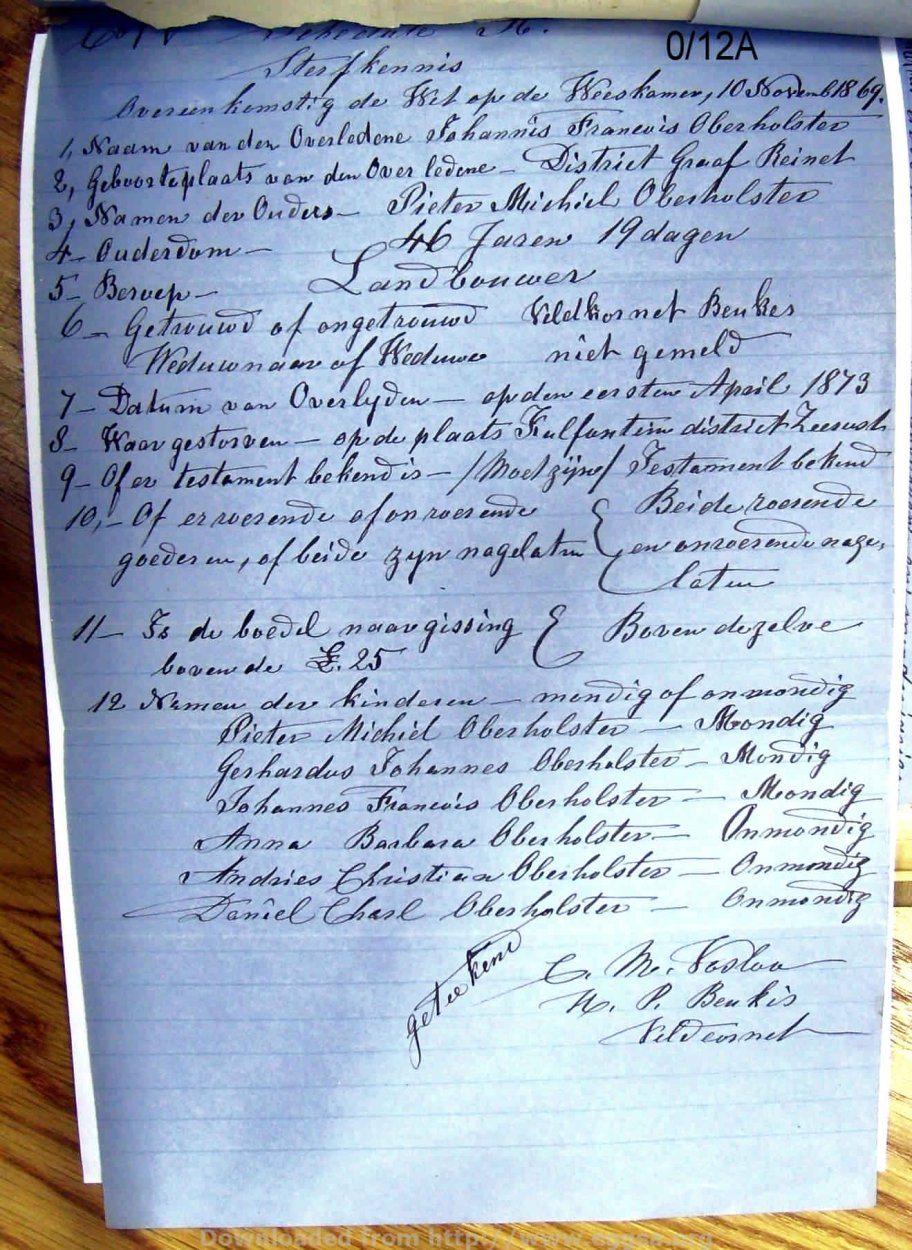 Copy Schedule
0/12A
Sterfkennis
Overeenkomstig de Wet op de Weeskamer, 10 Novemb 1869.
1, Naam van den Overledene Johannis Francois Oberholster
2, Geboorteplaats van den Overledene – District Graaf Reinet
3, Namen der Ouders – Pieter Michiel Oberholster
4 – Ouderdom – 46 Jaren 19 dagen
5 – Beroep – Landbouwer
6 – Getrouwd of ongetrouwd Veldkornet Beukes
Weduwnaar of Weduwe niet gemeld
7 – Datum van Overlyden – op den eersten April 1873
8 – Waar gestorven – op de plaats district Zeerust
9 – Of er testament bekend is – /Moet zijne/ Testament bekend
10, – Of er roerende of onroerende { Beide roerende
goederen, of beide zyn nagelaten en onroerende nage,
laten
11 – Is de boedel naar gissing { Boven dezelve
boven de £. 25
12 Namen der kinderen – mondig of onmondig
Pieter Michiel Oberholster – Mondig
Gerhardus Johannes Oberholster – Mondig
Johannes Francois Oberholster – Mondig
Anna Barbara Oberholster – Onmondig
Andries Christiaan Oberholster – Onmondig
Daniel Charl Oberholster – Onmondig
geteekend C. M. Vosloo
H. P. Beukis
Veldcornet
Downloaded from http://www.eggsa.org